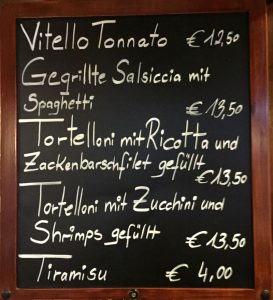 Vitello Tonnato € 12,50
Gegrillte Salsiccia mit
Spaghetti € 13,50
Tortelloni mit Ricotta und
Zackenbarschfilet gefüllt
€ 13,50
Tortelloni mit Zucchini und
Shrimps gefüllt € 13,50
Tiramisu € 4,00